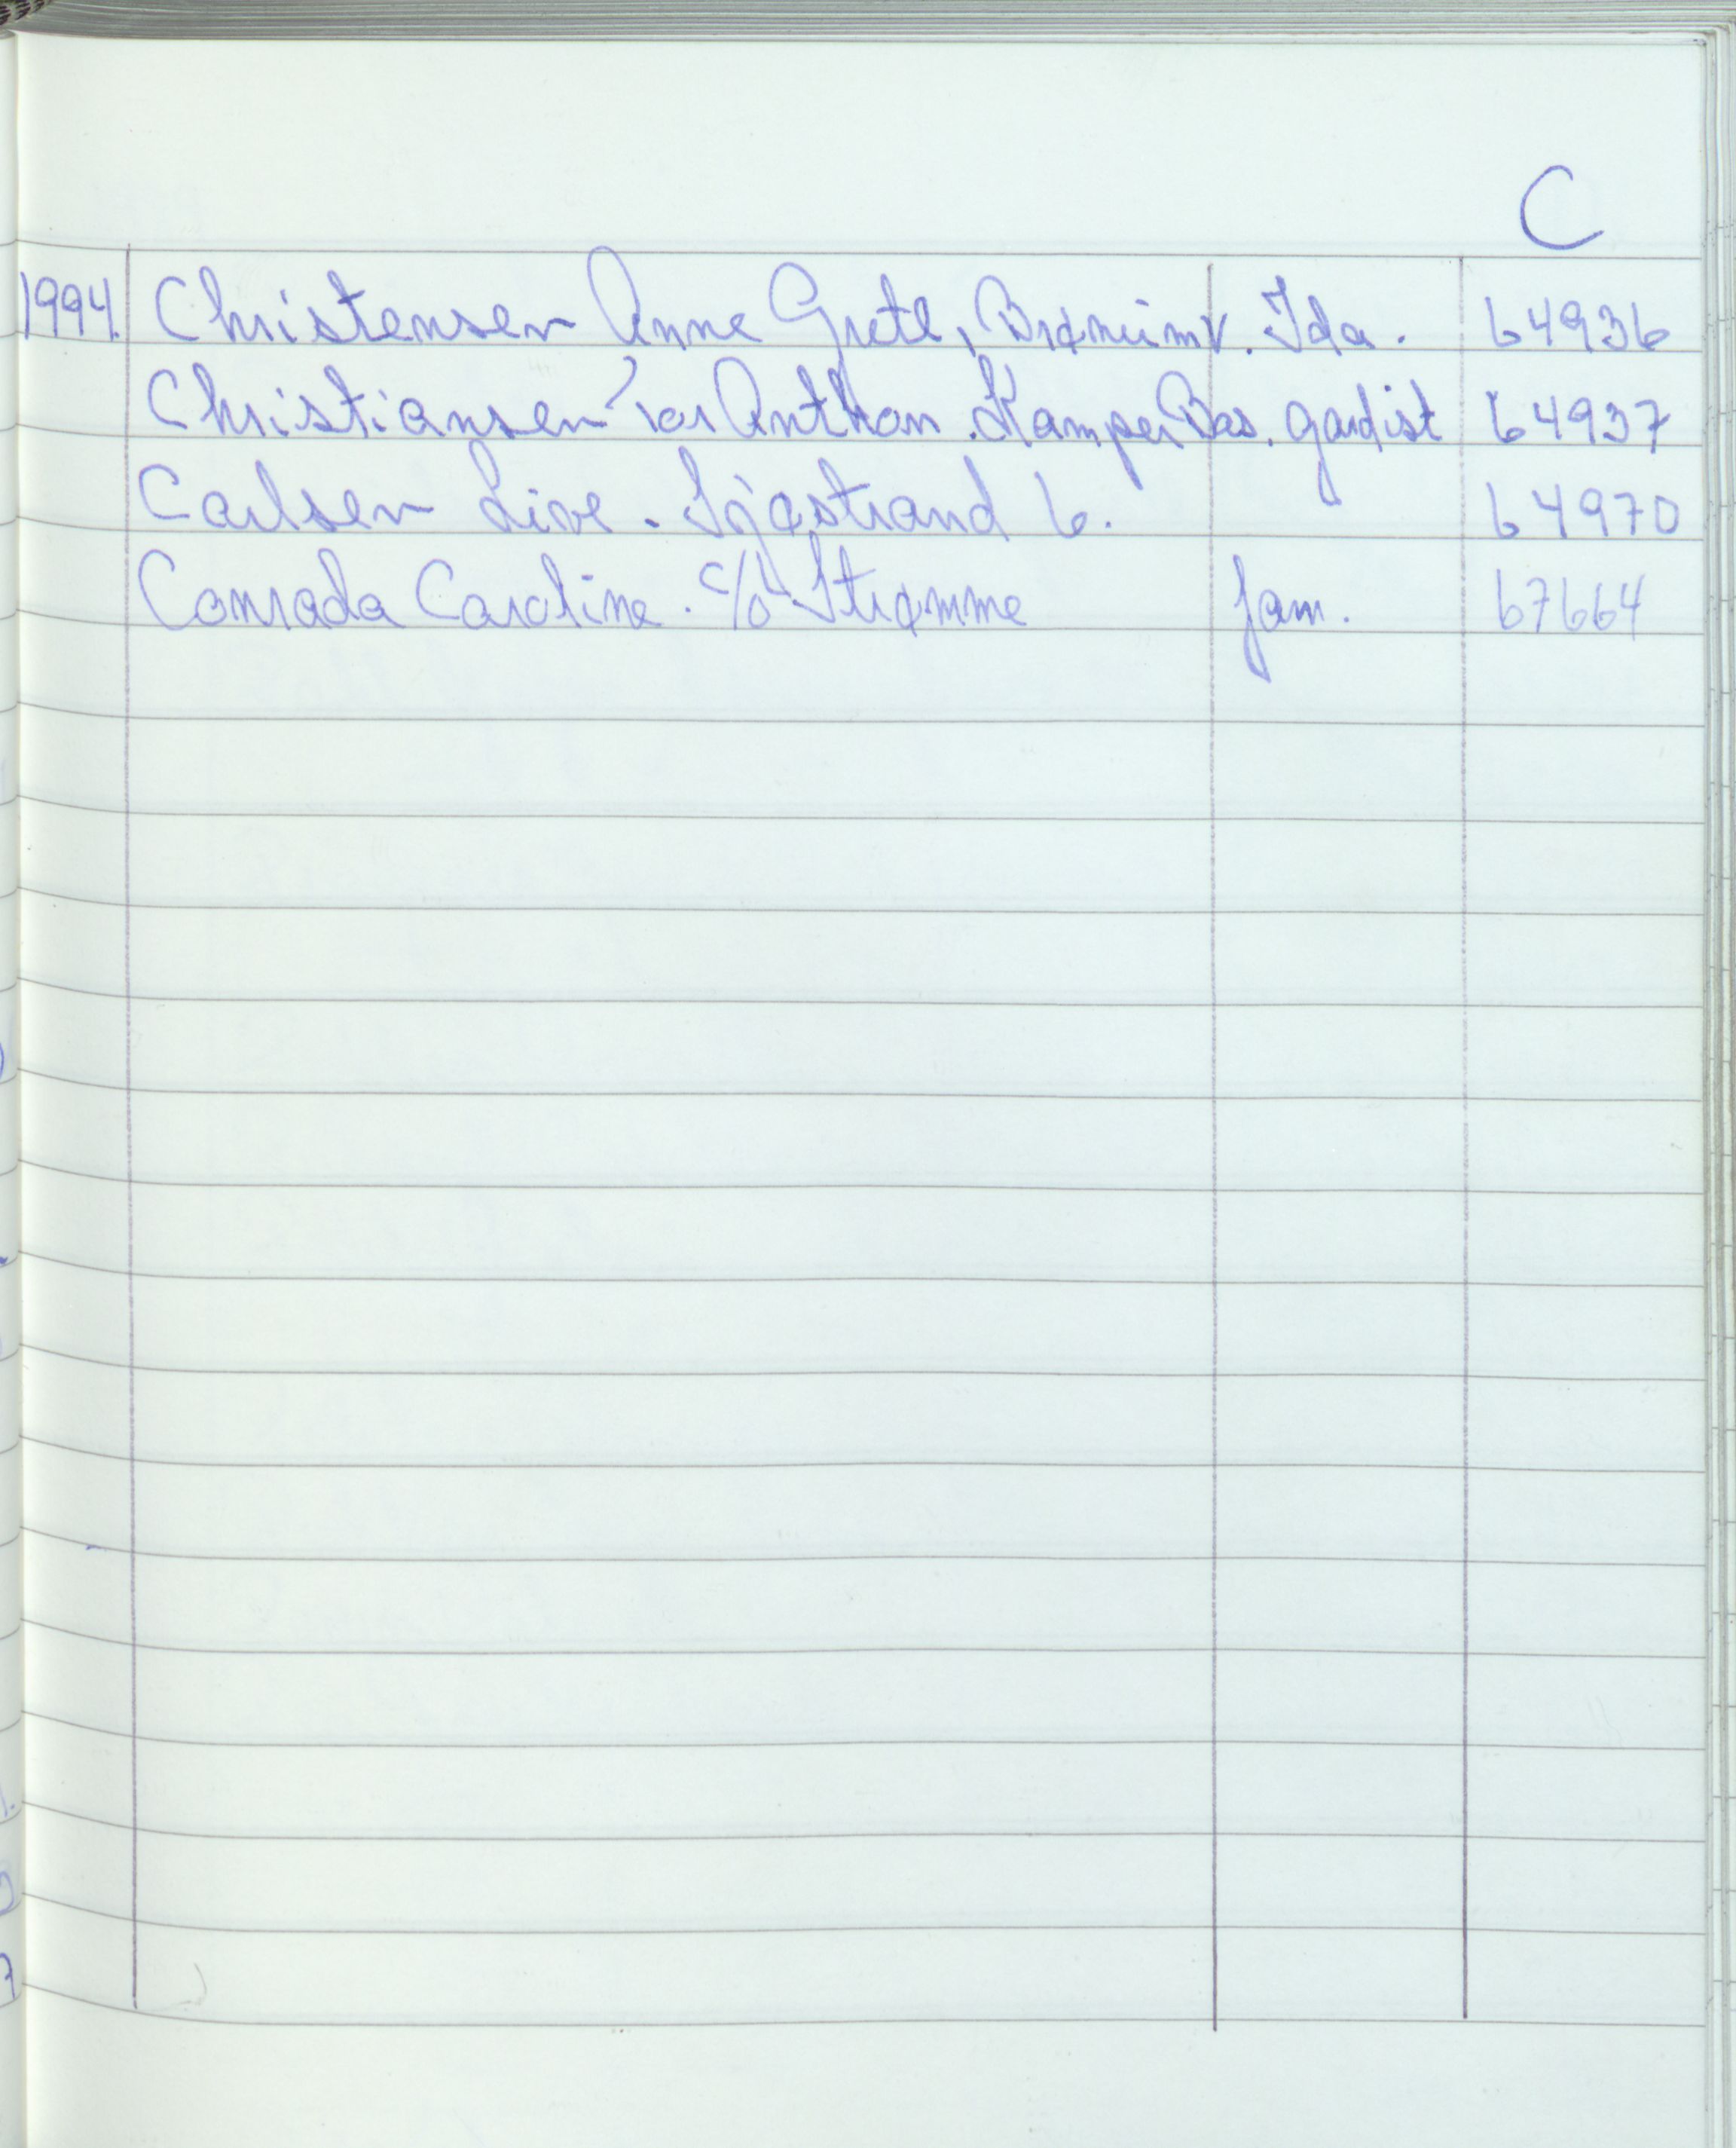 C
1994. Christensen Anne Grete, Brøneimv. Ida. 64936
Christiansen Tor Anthon. KamperBas. gardist 64937
Carlsen Live. Sjøstrand 6. 64970
Conrada Caroline. c/o Strømme fam. 67664